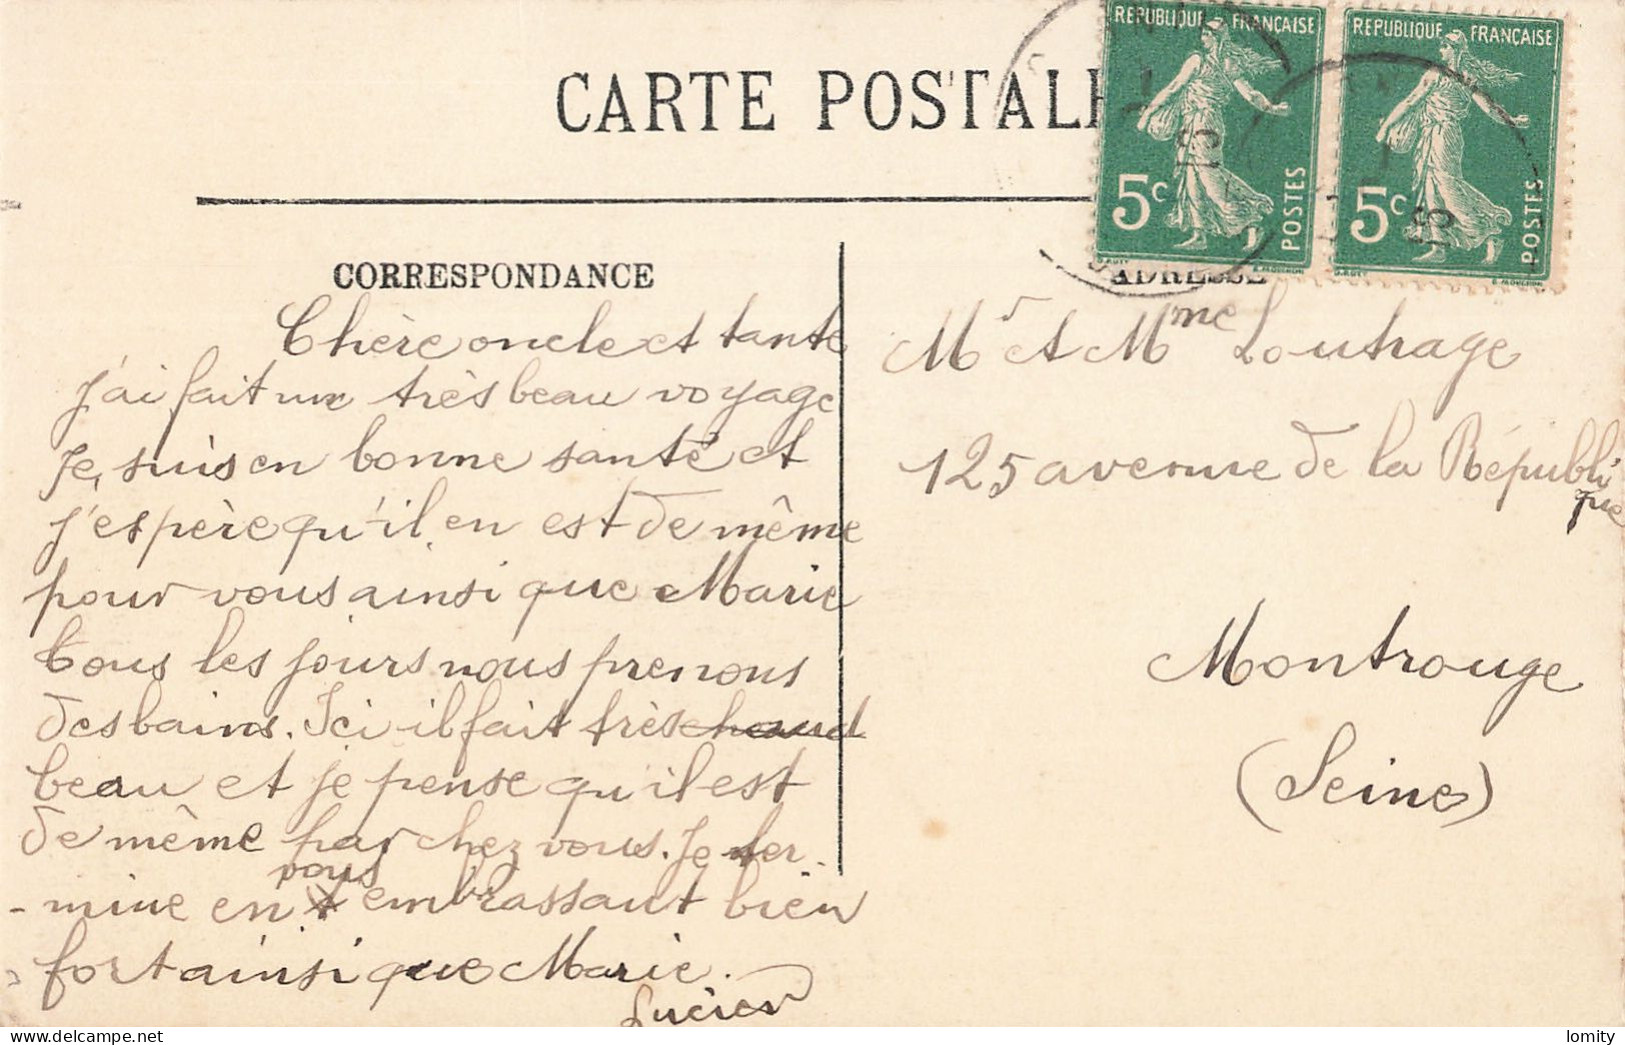 CARTE POSTALE
RÉPUBLIQUE FRANÇAISE
5c
POSTES
RÉPUBLIQUE FRANÇAISE
5c
POSTES
CORRESPONDANCE
Chère oncle et tante
J'ai fait un très beau voyage
Je, suis en bonne santé et
j'espère qu'il en est de même
pour vous ainsi que Marie
Tous les jours nous prenons
des bains. Ici il fait très chaud
beau et je pense qu'il est
de même par chez vous. Je ter-
vous
-mine en embrassant bien
fort ainsi que Marie.
Lucien
ADRESSE
Mr et Mme Loutrage
125 avenue de la Républi
que
Montrouge
(Seine)
delcampe.net
lomity